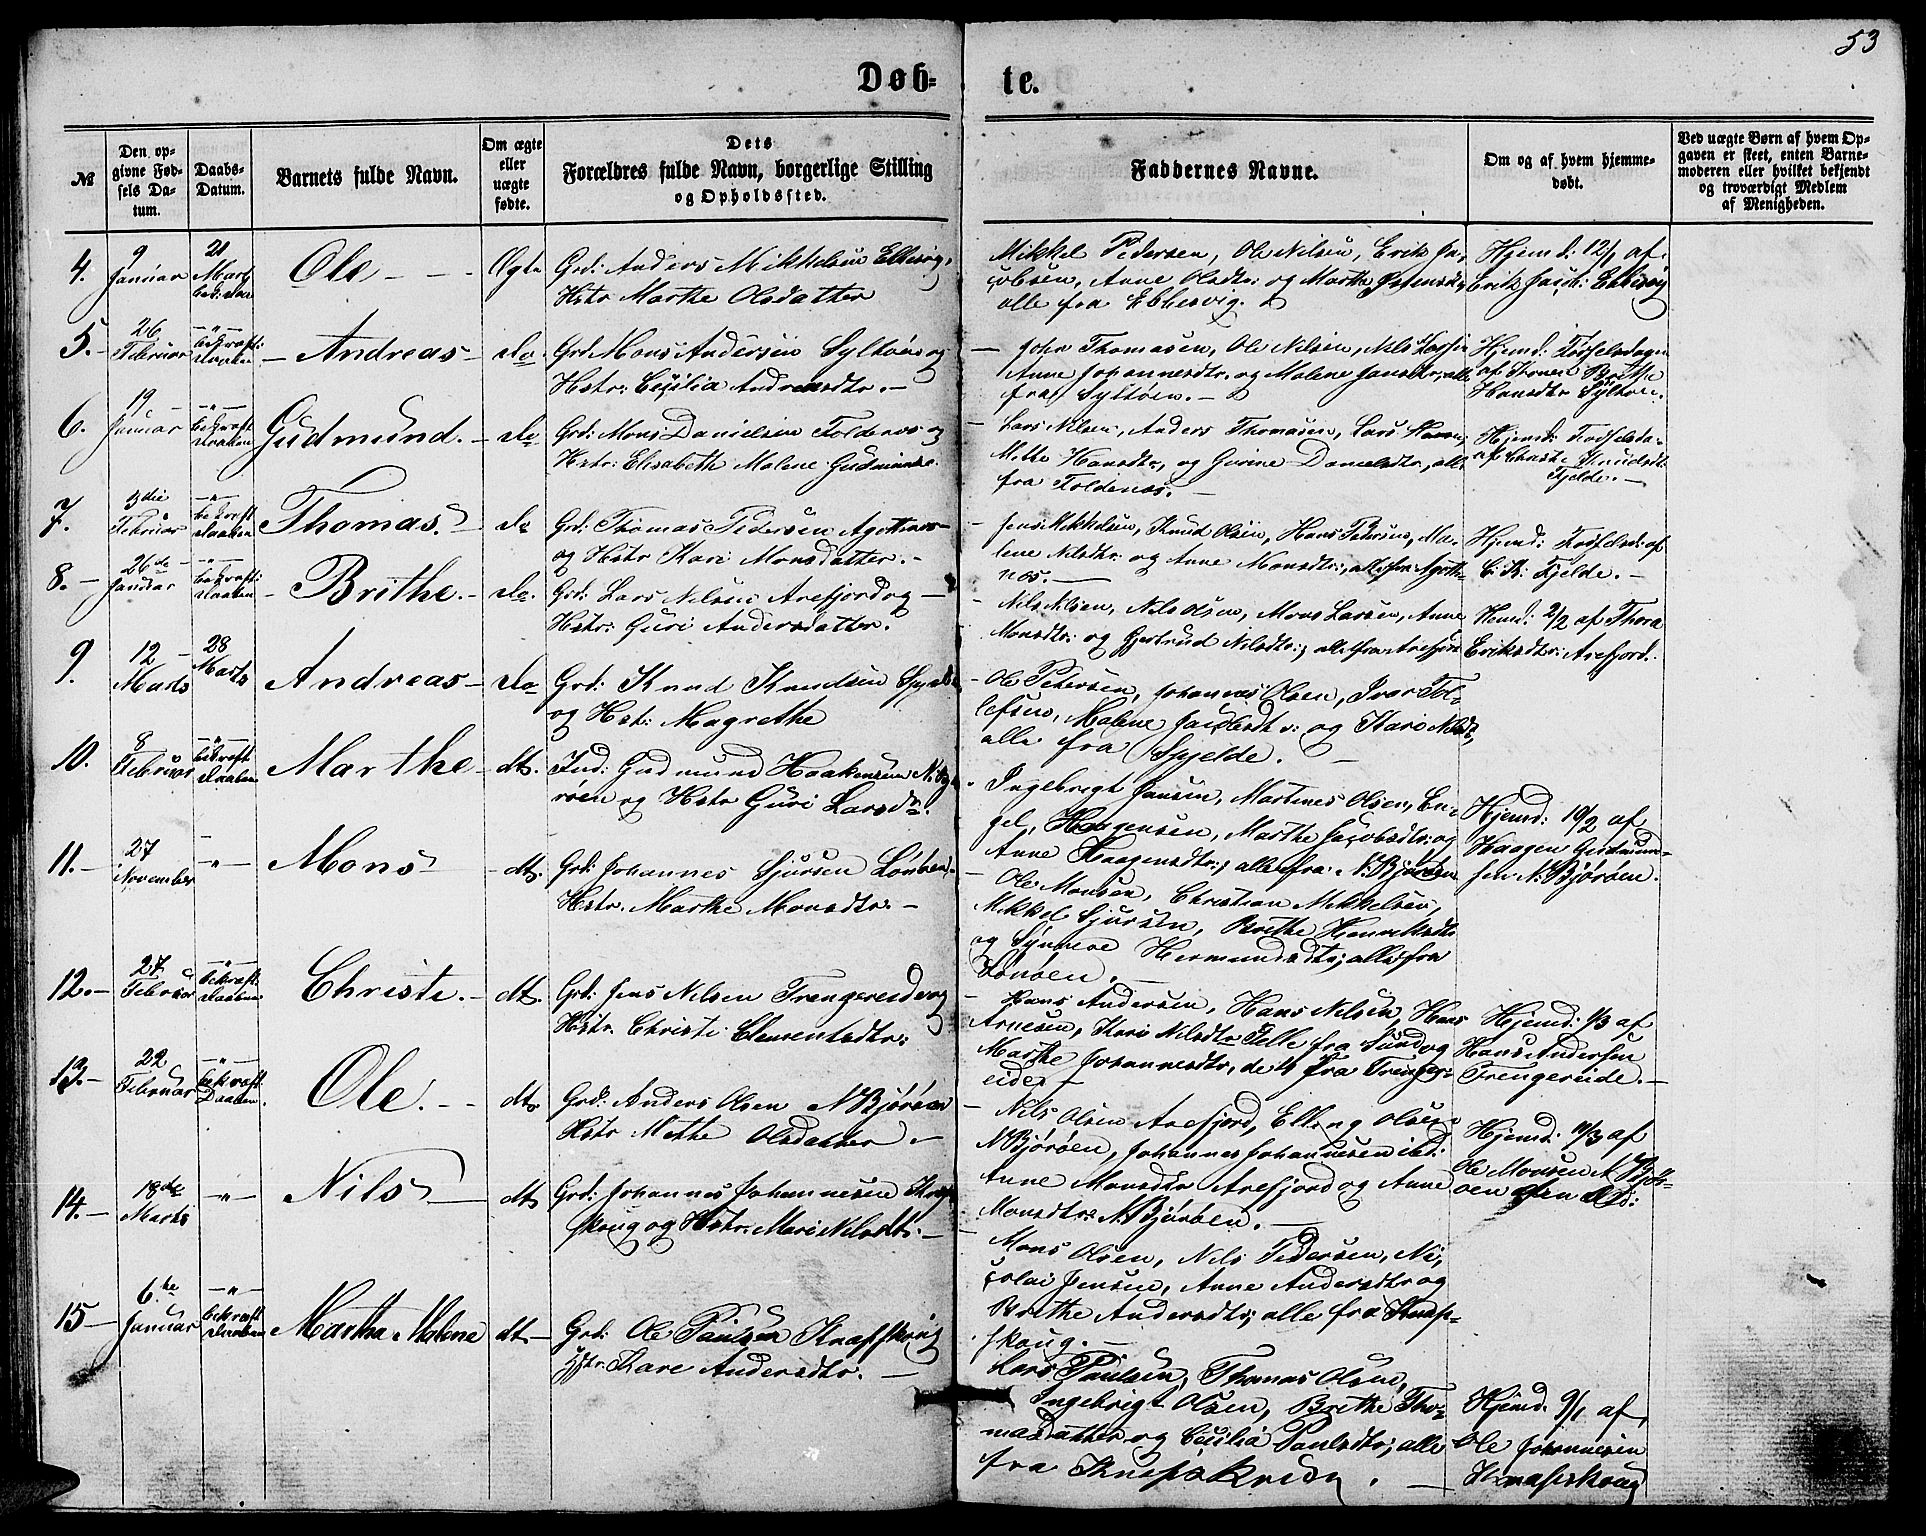 53
Døb-
te.
№
Den op-
givne Fød-
sels Da-
tum.
Daabs-
Datum.
Barnets fulde Navn.
Om ægte
eller
uægte
fødte.
Dets
Forældres fulde Navn, borgerlige Stilling
og Opholdssted.
Faddernes Navne.
Om og af hvem hjemme-
døbt.
Ved uægte Børn af hvem Op-
gaven er skeet, enten Barne-
moderen eller hvilket bekjendt
og troværdigt Medlem
af Menigheden.
4.
9
Januar
21
Marts
Ole
Ægte
Grd: Anders Mikkelsen Ebbesvig,
Hstr Marthe Olsdatter
Mikkel Pedersen, Ole Nilsen, Erik Ja-
cobsen, Anne Olsdtr: og Marthe
alle fra Ebbesvig.
Hjemd: 12/1 af
Erik Jacob: Ebbesvig
5.
26
Februar
bekræft:
Daaben
Andreas
do.
Grd Mons Andersen Syltøen og
Hstr: Cecilia Andreasdtr.
John Thomasen, Ole Nilsen, Nils Larsen
Anne Johannesdtr. og Malene Jansdtr, alle
fra Syltøen.
Hjemd: Fødselsdagen
af
Hansdtr Syltøen.
6.
19
Januar
bekræft:
Daaben
Gudmund.
do
Grd: Mons Danielsen Foldenes og
Hstr: Elisabeth Malene Gudmundsd.
Lars Nilsen, Anders Thomasen, Lars
Mette Hansdtr, og Gurine Danielsdtr, alle
fra Foldenes.
Hjemd: Fødselsda-
af Christi Knudsdt
Fjelde.
7.
13die
Februar
bekræft
Daaben
Thomas.
do
Grd: Thomas Pedersen Agotnes
og Hstr Kari Monsdatter.
Jens Mikkelsen, Knud Olsen, Hans Pedersen, Ma-
lene Nilsdtr: og Anne Monsdtr:, alle fra Agott-
nes.
Hjemd: Fødselsd: af
Fjelde.
8.
26de
Januar
bekræft:
Daaben
Brithe.
do.
Grd: Lars Nilsen Arefjord og
Hstr: Guri Andersdatter.
Nils Nilsen, Nils Olsen, Mons Larsen, Anne
Monsdtr: og Gjertrud Nilsdtr:, alle fra Arefjord
Hemd: 2/2 af Thora
Eriksdtr: Arefjord.
9.
12
Marts
28
Marts
Andreas
do
Grd: Knud Knudsen Spjelde
og Hstr: Magrethe
Ole Petersen, Johannes Olsen, Ivar Tol-
lefsen, Malene Jacobsdtr: og Kari Nilsdt,
alle fra Spjelde.
10.
8
Februar
bekræft
Daaben
Marthe
dto.
Ind: Gudmund Haakensen N. Bjo-
røen og Hstr Guri Larsdtr.
Ingebrigt Jansen, Martenes Olsen, En-
gel, Haagensen, Marthe Jacobsdtr: og
Anne Haagensdtr:, alle fra N. Bjorøen
Hjemd: 19/2 af
Haagen Gudmun-
sen N. Bjørøen.
11.
27
November
Mons
dto.
Grd: Johannes Sjursen Lønøen,
Hstr. Marthe Monsdtr.
Ole Monsen, Christian Mikkelsen,
Mikkel Sjursen, Brithe Henriksdtr
og Synneve Hermundsdtr, alle fra
Lønøen.
12.
27
Februar
bekræft:
Daaben
Christi.
dto.
Grd: Jens Nilsen Trengereide og
Hstr. Christi Clemensdtr:
Hans Andersen, Hans Nilsen, Hans
Arnesen, Kari Nilsdtr Telle fra Sund og
Marthe Johannesdtr, de 4 fra Trenger-
eide.
Hjemd: 1/3 af
Hans Andersen
Trengereide.
13.
22
Februar
bekræft
Daaben.
Ole.
dto
Grd: Anders Olsen N Bjorøen
Hstr Mette Olsdatter.
Nils Olsen Arefjord, Elling Olsen
N Bjorøen, Johannes Johannesen ibd:
Anne Monsdtr Arefjord og Anne
Monsdtr: N. Bjorøen.
Hjemd: 11/3 af
Ole Monsen N Bjor-
oen
14.
18de
Marts
Nils
dto
Grd: Johannes Johannesen Knap-
skoug og Hstr. Mari Nilsdtr.
Mons Olsen, Nils Pedersen, Ni-
colai Jensen, Anne Andersdtr og
Brithe Andersdtr, alle fra Knap-
skoug.
15
6te
Januar
bekræft
Daaben
Martha Malene
dto
Grd: Ole Paulsen Knapskoug
Hstr. Kari Andersdtr.
Lars Paulsen, Thomas Olsen,
Ingebrigt Olsen, Brithe Tho-
masdatter og Cecilia Paulsdtr, alle
fra Knapskoug.
Hjemd. 9/1 af
Ole Johannesen
Knapskoug